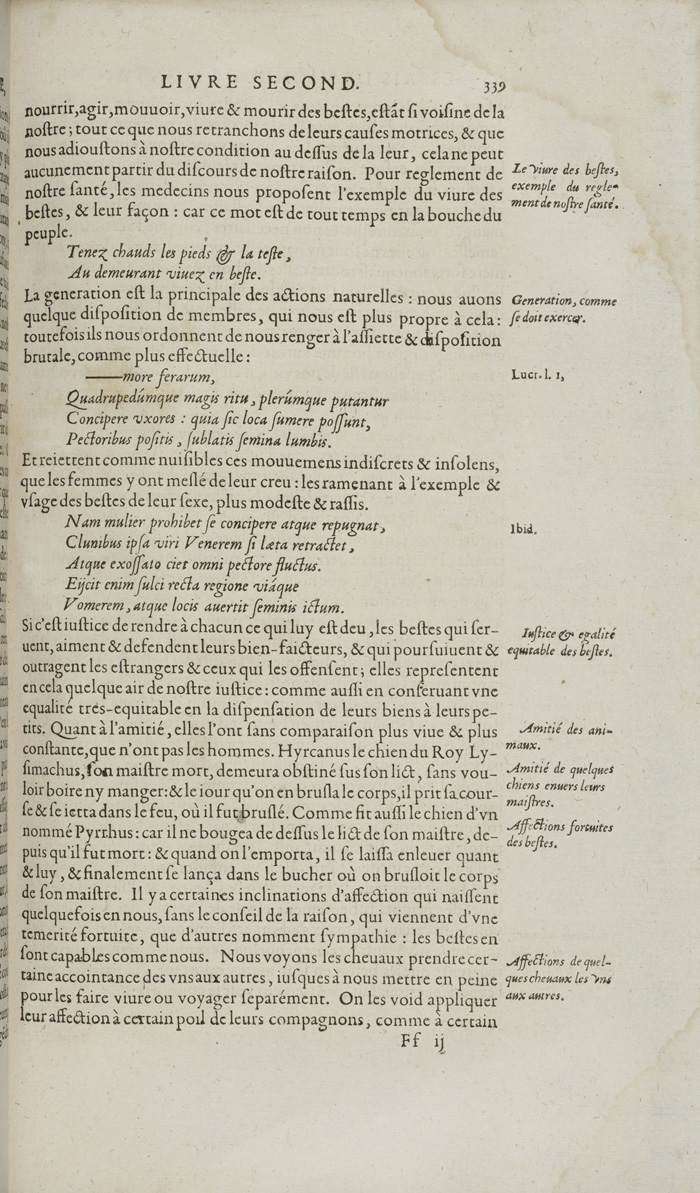 LIVRE SECOND. 339
nourrir,agir,mouuoir,viure & mourir des bestes,estāt si voisine de la
nostre ; tout ce que nous retranchons de leurs causes motrices, & que
nous adioustons à nostre condition au dessus de la leur, cela ne peut
aucunement partir du discours de nostre raison. Pour reglement de
nostre santé, les medecins nous proposent l'exemple du viure des
bestes, & leur façon : car ce mot est de tout temps en la bouche du
peuple.
Le viure des bestes,
exemple du regle-
ment de nostre santé.
Tenez chauds les pieds & la teste,
Au demeurant viuez en beste.
La generation est la principale des actions naturelles : nous auons
quelque disposition de membres, qui nous est plus propre à cela :
toutefois ils nous ordonnent de nous renger à l'assiette & disposition
brutale, comme plus effectuelle :
Generation, comme
se doit exercer.
——more ferarum,
Lucr. l. 1,
Quadrupedúmque magis ritu, plerúmque putantur
Concipere vxores : quia sic loca sumere possunt,
Pectoribus positis, sublatis semina lumbis.
Et reiettent comme nuisibles ces mouuemens indiscrets & insolens,
que les femmes y ont meslé de leur creu : les ramenant à l'exemple &
vsage des bestes de leur sexe, plus modeste & rassis.
Nam mulier prohibet se concipere atque repugnat,
Ibid.
Clunibus ipsa viri Venerem si læta retractet,
Atque exossato ciet omni pectore fluctus.
Eijcit enim sulci recta regione viáque
Vomerem, atque locis auertit seminis ictum.
Si c'est iustice de rendre à chacun ce qui luy est deu, les bestes qui ser-
uent, aiment & defendent leurs bien-faicteurs, & qui poursuiuent &
outragent les estrangers & ceux qui les offensent ; elles representent
en cela quelque air de nostre iustice : comme aussi en conseruant vne
equalité tres-equitable en la dispensation de leurs biens à leurs pe-
tits. Quant à l'amitié, elles l'ont sans comparaison plus viue & plus
constante, que n'ont pas les hommes. Hyrcanus le chien du Roy Ly-
simachus, son maistre mort, demeura obstiné sus son lict, sans vou-
loir boire ny manger : & le iour qu'on en brusla le corps, il prit sa cour-
se & se ietta dans le feu, où il fut bruslé. Comme fit aussi le chien d'vn
nommé Pyrrhus : car il ne bougea de dessus le lict de son maistre, de-
puis qu'il fut mort : & quand on l'emporta, il se laissa enleuer quant
& luy, & finalement se lança dans le bucher où on brusloit le corps
de son maistre. Il y a certaines inclinations d'affection qui naissent
quelquefois en nous, sans le conseil de la raison, qui viennent d'vne
temerité fortuite, que d'autres nomment sympathie : les bestes en
sont capables comme nous. Nous voyons les cheuaux prendre cer-
taine accointance des vns aux autres, iusques à nous mettre en peine
pour les faire viure ou voyager separément. On les void appliquer
leur affection à certain poil de leurs compagnons, comme à certain
Iustice & egalité
equitable des bestes.
Amitié des ani-
maux.
Amitié de quelques
chiens enuers leurs
maistres.
Affections fortuites
des bestes.
Affections de quel-
ques cheuaux les vns
aux autres.
Ff ij